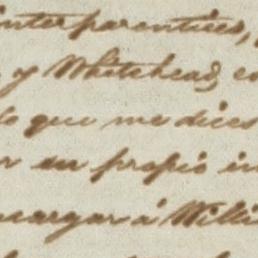 inter parentices,
y Whitehead, co
lo que me dices
r su propio in
ncargar á Willi